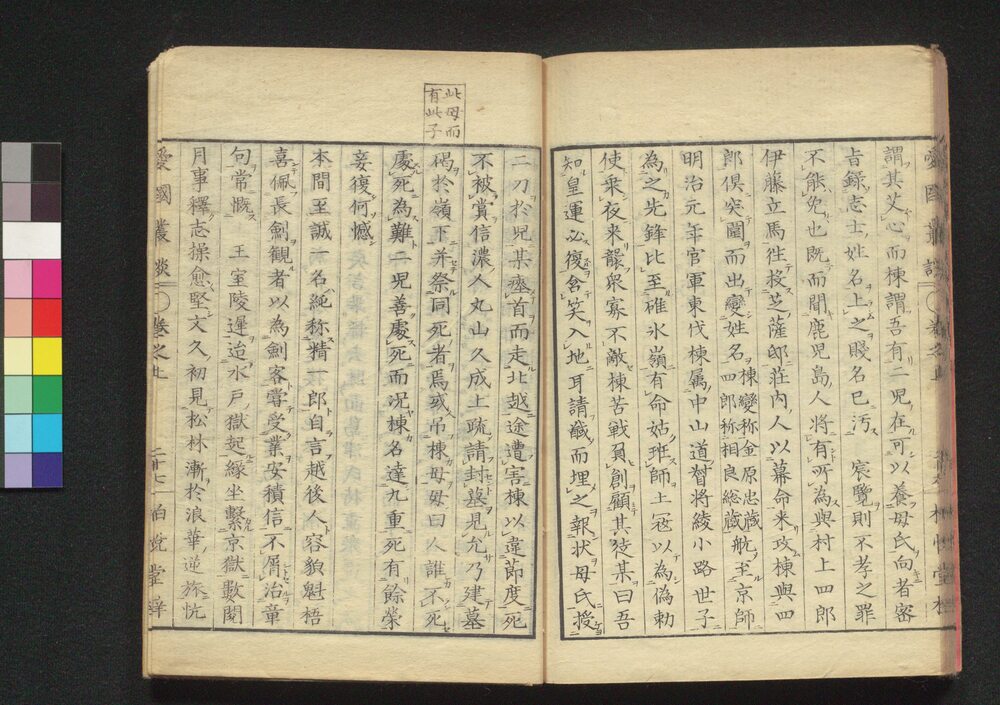 謂其父心而棟謂吾有二児在可以養母氏向者密
旨録志士姓名上之賤名已汚　宸覽則不孝之罪
不能免也既而聞鹿児島人将有所為與村上四郎
伊藤立馬徃投芝薩邸荘内人以幕命来攻棟與四
郎倶突圍而出變姓名棟變称金原忠蔵四郎称相良総蔵航至京師
明治元年官軍東伐棟属中山道督将綾小路世子
為之先鋒比至碓氷嶺有命姑班師上冦以為偽勅
使衆夜来襲衆寡不敵棟苦戦負創顧其徒某曰吾
知皇運必復含笑入地耳請馘而埋之報状母氏授
此母而
有此子
二刀於児某瘞首而走北越途遭害棟以違節度死
不被賞信濃人丸山久成上疏請封墓見允乃建墓
碣於嶺下并祭同死者焉或吊棟母母曰人誰不死
處死為難二児善處死而况棟名達九重死有餘榮
妾復何憾
本間至誠一名純称精一郎自言越後人容貌魁梧
喜佩長劍観者以為劍客嘗受業安積信不屑治章
句常慨　王室陵遲迨水戸獄起縁坐繋京獄數閲
月事釋志操愈堅文久初見松林漸於浪華逆旅忼
愛國叢談　巻之上　二十七　柏悦堂梓